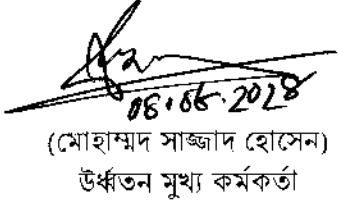 08.08.2028
(মোহাম্মদ সাজ্জাদ হোসেন)
উর্ধ্বতন মুখ্য কর্মকর্তা